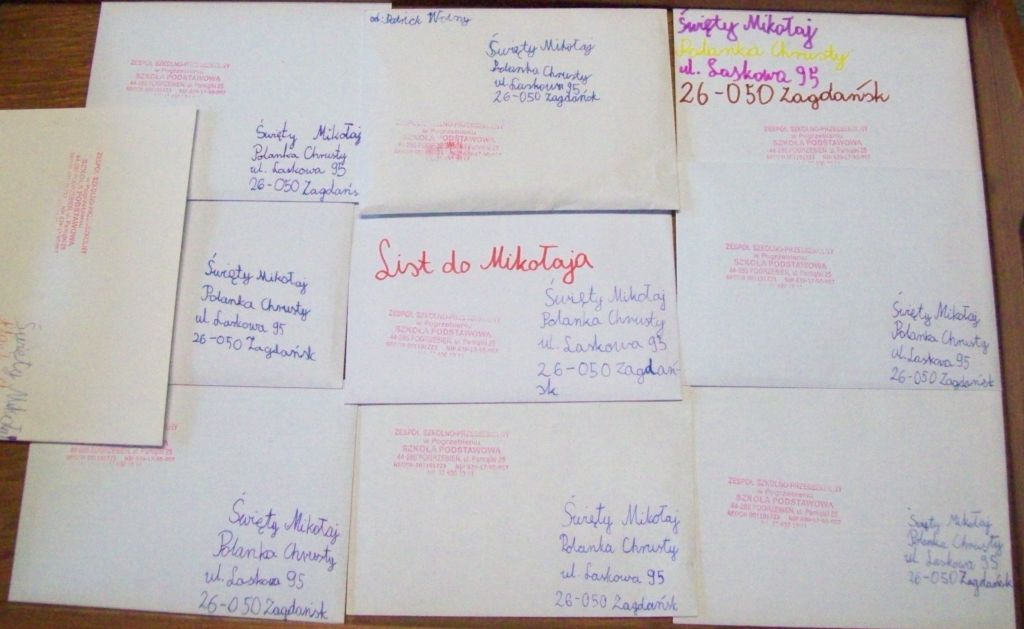 ZESPÓŁ SZKOLNO-PRZEDSZKOLNY
w Pogrzebieniu
SZKOŁA PODSTAWOWA
44-285 POGRZEBIEŃ, ul. Pamiątki 25
Święty Mikołaj
Polanka Chrusty
ul. Laskowa 95
26-050 Zagdańs
od:
Święty Mikołaj
Polanka Chrusty
ul. Laskowa 95
26-050 Zagdańsk
SZKOŁA PODSTAWOWA
Święty Mikołaj
Polanka Chrusty
ul. Laskowa 95
26-050 Zagdańsk
ZESPÓŁ SZKOLNO-PRZEDSZKOLNY
w Pogrzebieniu
SZKOŁA PODSTAWOWA
44-285 POGRZEBIEŃ, ul. Pamiątki 25
ZESPÓŁ SZKOLNO-PRZEDSZKOLNY
w Pogrzebieniu
SZKOŁA PODSTAWOWA
Święty Mikołaj
Święty Mikołaj
Polanka Chrusty
ul. Laskowa 95
26-050 Zagdańsk
List do Mikołaja
ZESPÓŁ SZKOLNO-PRZEDSZKOLNY
w Pogrzebieniu
SZKOŁA PODSTAWOWA
44-285 POGRZEBIEŃ, ul. Pamiątki 25
Święty Mikołaj
Polanka Chrusty
ul. Laskowa 95
26-050 Zagdań-
sk
ZESPÓŁ SZKOLNO-PRZEDSZKOLNY
w Pogrzebieniu
SZKOŁA PODSTAWOWA
44-285 POGRZEBIEŃ, ul. Pamiątki 25
Święty Mikołaj
Polanka Chrusty
ul. Laskowa 95
26-050 Zagdańsk
Święty Mikołaj
Polanka Chrusty
ul. Laskowa 95
26-050 Zagdańsk
ZESPÓŁ SZKOLNO-PRZEDSZKOLNY
w Pogrzebieniu
SZKOŁA PODSTAWOWA
44-285 POGRZEBIEŃ, ul. Pamiątki 25
Święty Mikołaj
Polanka Chrusty
ul. Laskowa 95
26-050 Zagdańsk
ZESPÓŁ SZKOLNO-PRZEDSZKOLNY
w Pogrzebieniu
SZKOŁA PODSTAWOWA
44-285 POGRZEBIEŃ, ul. Pamiątki 25
Święty Mikołaj
Polanka Chrusty
ul. Laskowa 95
26-050 Zagdańsk